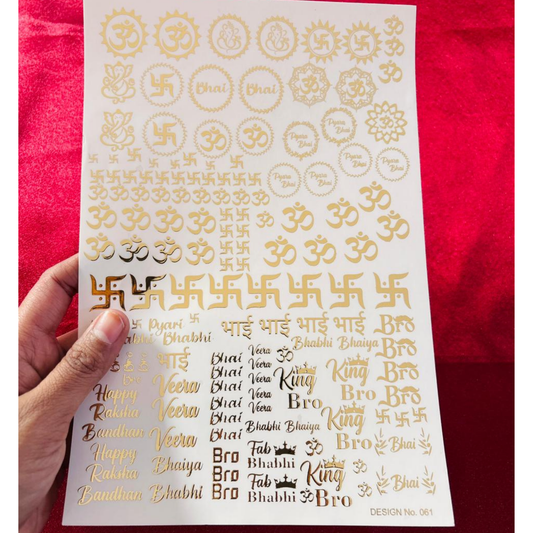 Bhai Bhai
Pyara Bhai Pyara Bhai
Pyara Bhai Pyara Bhai Pyara Bhai Pyara Bhai
ॐ ॐ ॐ ॐ
Pyari Bhabhi
भाई भाई भाई भाई
Bro
Bhabhi Bhaiya
Bro
भाई
Bhai Veera ॐ
King Bro
King Bro
Happy Raksha Bandhan
Veera Veera
Bhai Bhai Bhai Bhai
Veera Veera Veera Veera
Bhabhi Bhaiya
King Bro
Happy Raksha Bandhan
Bhaiya Bhabhi
Bro Bro Bro
Fab Bhabhi
Fab Bhabhi
ॐ
King Bro
Bhai
Bhai
DESIGN No. 061